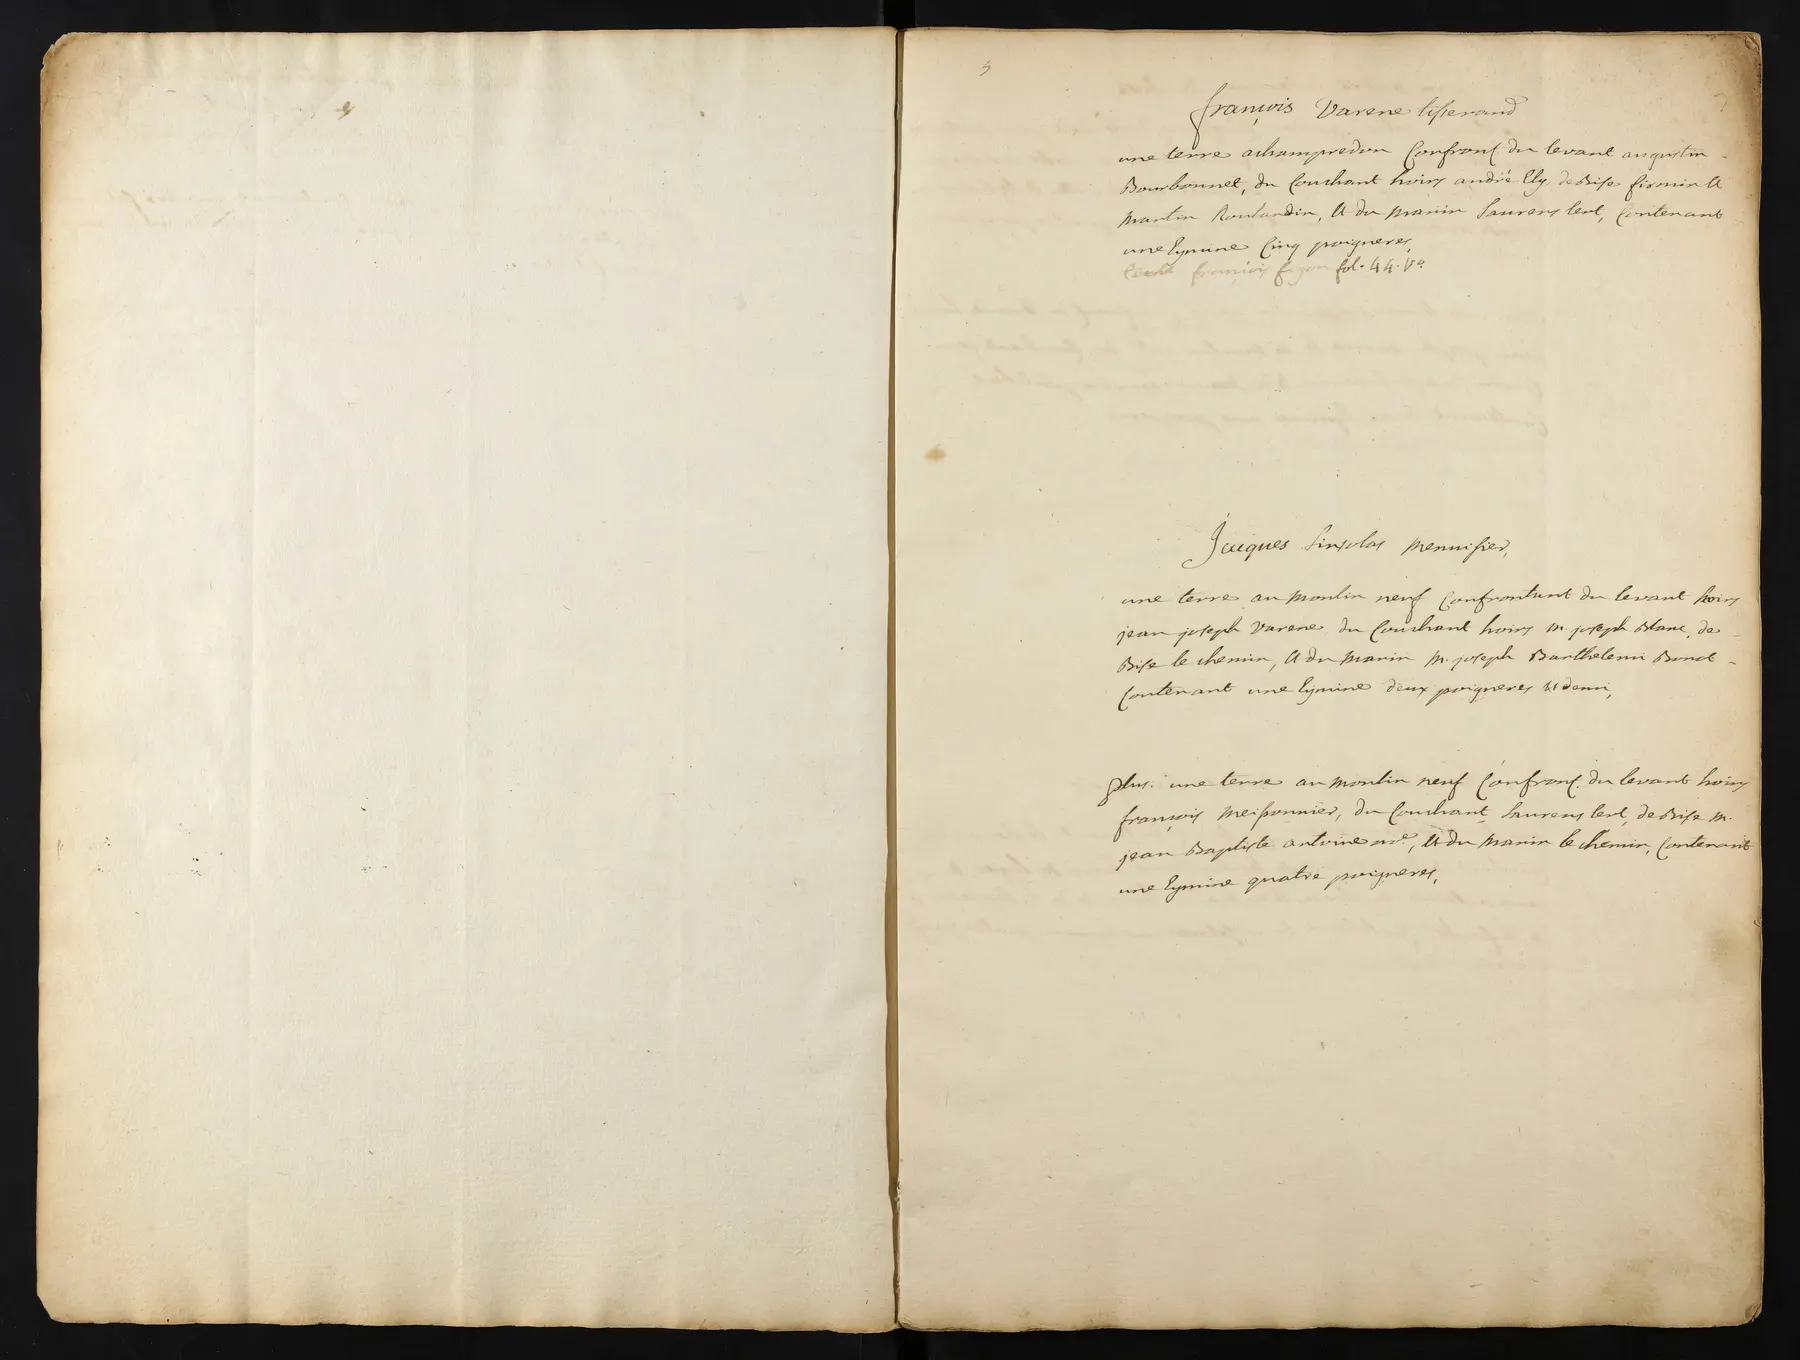 françois Varene tisserand
une terre a champredon Confront. du levant augustin
Bourbonnet, du Couchant hoirs andré Ely, de Bise firmin et
martin Roulandin, et du marin Laurens tert, Contenant
une Eymine Cinq poigneres,
françois fol. 44. Vo
Jacques Sinsolas mennisier,
une terre au moulin neuf Confrontant du levant hoirs
jean joseph Varene, du Couchant hoirs m. joseph Blanc, de
Bise le chemin, et du marin m. joseph Barthelemi Bonet
Contenant une Eymine deux poigneres et demi,
plus. une terre au moulin neuf Confront. du levant hoirs
françois meissonnier, du Couchant Laurens tert, de Bise m.
jean Baptiste antoine et du marin le chemin, Contenant
une Eymine quatre poigneres,